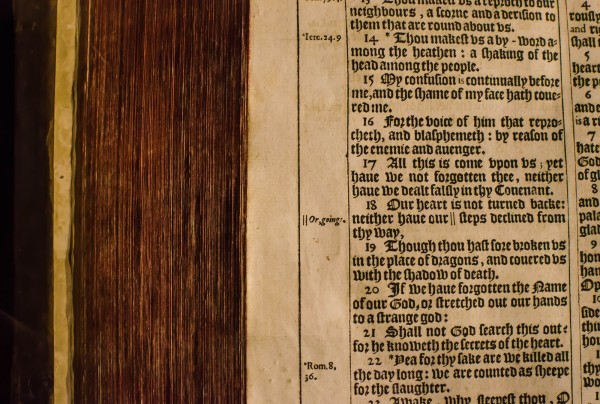 Thou makest vs a reproch to our
neighbours, a scorne and a derision to
them that are round about vs.
*Iere.24.9
14 * Thou makest vs a by-word a-
mong the heathen: a shaking of the
head among the people.
15 My confusion is continually before
me, and the shame of my face hath coue-
red me.
16 For the voice of him that repro-
cheth, and blasphemeth: by reason of
the enemie and auenger.
17 All this is come vpon vs; yet
haue we not forgotten thee, neither
haue we dealt falsly in thy Couenant.
18 Our heart is not turned backe:
||Or, goings.
neither haue our || steps declined from
thy way,
19 Though thou hast sore broken vs
in the place of dragons, and couered vs
with the shadow of death.
20 If we haue forgotten the Name
of our God, or stretched out our hands
to a strange god:
21 Shall not God search this out:
for he knoweth the secrets of the heart.
*Rom.8,
36.
22 *Yea for thy sake are we killed all
the day long: we are counted as sheepe
for the slaughter.
Awake, why sleepest thou, O
4
rously
shall
5
heart
6
7
hate
God
8
and
9
10